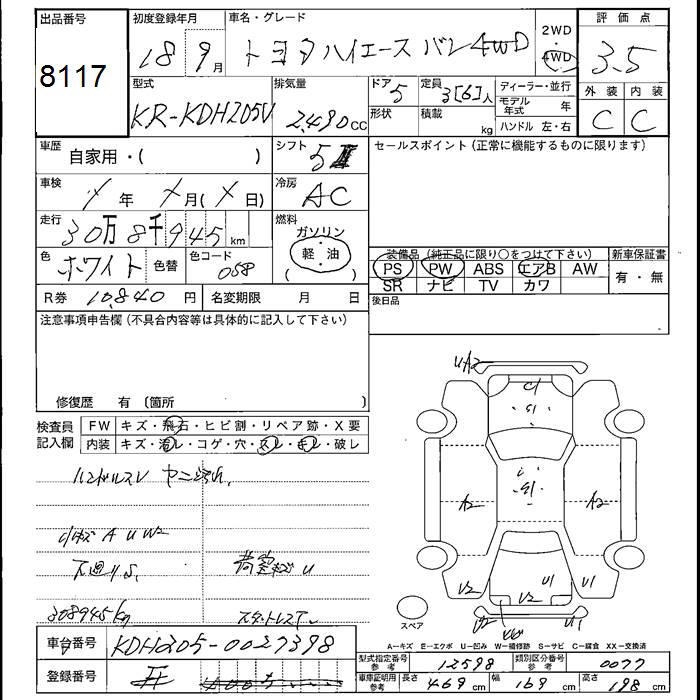 出品番号
8117
初度登録年月
18 9月
車名・グレード
トヨタ ハイエース バン 4WD
2WD
4WD
評価点
3.5
外装 内装
C C
型式
KR-KDH205V
排気量
2,490cc
ドア 5
形状
定員 3[6]人
積載 kg
ディーラー・並行
モデル年式 年
ハンドル 左・右
車歴
自家用・( )
シフト
5
セールスポイント(正常に機能するものに限ります)
車検
年 月( 日)
冷房
AC
走行
30万8千945km
燃料
ガソリン
軽・油
( )
色
ホワイト
色替
色コード
058
R券 10,840円
名変期限 月 日
装備品(純正品に限り○をつけて下さい)
PS PW ABS エアB AW
SR ナビ TV カワ
新車保証書
有・無
後日品
注意事項申告欄(不具合内容等は具体的に記入して下さい)
修復歴 有(箇所 )
検査員記入欄
FW キズ・飛石・ヒビ割・リペア跡・X要
内装 キズ・汚レ・コゲ・穴・スレ・キレ・破レ
ハンドルスレ ヤニ汚れ
小キズ A U W2
下廻りS,
荷室キズ U
308945kg
UA2
C1
S1
S1
A2
A2
V2
V2
U1
U1
U2
U1
スペア
A-キズ E-エクボ U-凹み W-補修跡 S-サビ C-腐食 XX-交換済
車台番号
KDH205-0027398
登録番号
型式指定番号 参考 12598
類別区分番号 参考 0077
車庫証明用 参考 長さ 469cm 幅 169cm 高さ 198cm